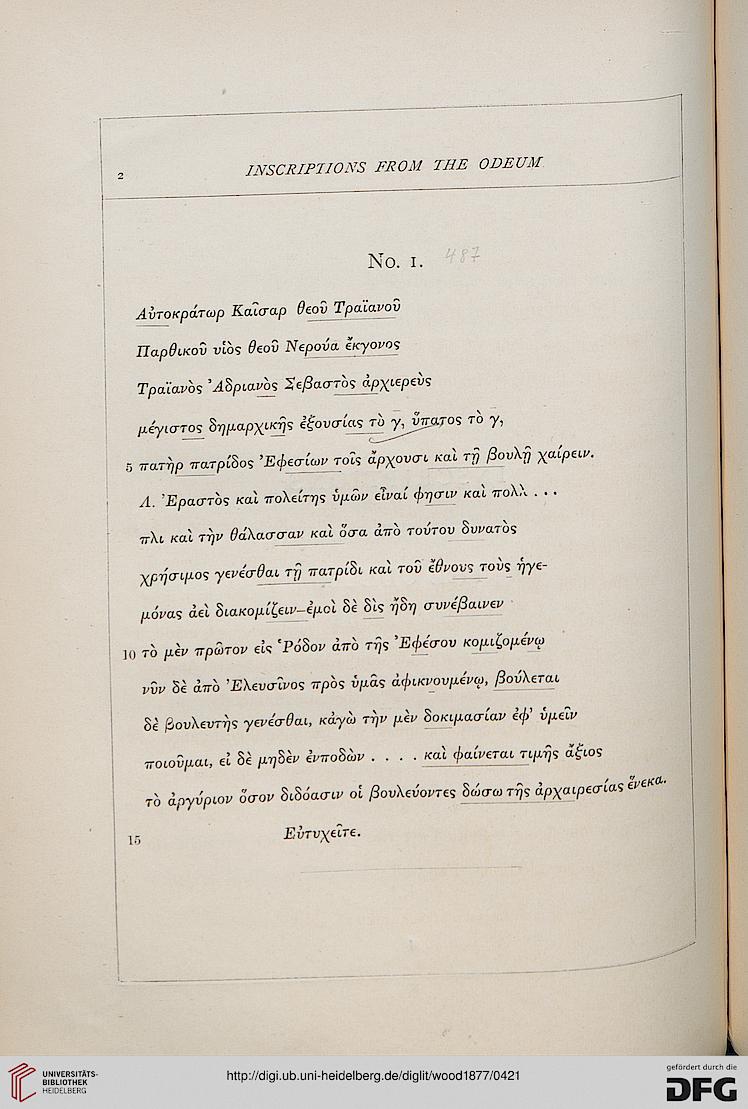 2
INSCRIPTIONS FROM THE ODEUM
No. 1. 487
Αὐτοκράτωρ Καῖσαρ θεοῦ Τραϊανοῦ
Παρθικοῦ υἱὸς θεοῦ Νερούα ἔκγονος
Τραϊανὸς Ἁδριανὸς Σεβαστὸς ἀρχιερεὺς
μέγιστος δημαρχικῆς ἐξουσίας τὸ γ, ὕπατος τὸ γ,
5 πατὴρ πατρίδος Ἐφεσίων τοῖς ἄρχουσι καὶ τῇ βουλῇ χαίρειν.
Λ. Ἐραστὸς καὶ πολείτης ὑμῶν εἶναί φησιν καὶ πολλ . . .
πλι καὶ τὴν θάλασσαν καὶ ὅσα ἀπὸ τούτου δυνατὸς
χρήσιμος γενέσθαι τῇ πατρίδι καὶ τοῦ ἔθνους τοὺς ἡγε-
μόνας ἀεὶ διακομίζειν–ἐμοὶ δὲ δὶς ἤδη συνέβαινεν
10 τὸ μὲν πρῶτον εἰς Ῥόδον ἀπὸ τῆς Ἐφέσου κομιζομένῳ
νῦν δὲ ἀπὸ Ἐλευσῖνος πρὸς ὑμᾶς ἀφικνουμένῳ, βούλεται
δὲ βουλευτὴς γενέσθαι, κἀγὼ τὴν μὲν δοκιμασίαν ἐφ' ὑμεῖν
ποιοῦμαι, εἰ δὲ μηδὲν ἐνποδὼν . . . . καὶ φαίνεται τιμῆς ἄξιος
τὸ ἀργύριον ὅσον διδόασιν οἱ βουλεύοντες δώσω τῆς ἀρχαιρεσίας ἕνεκα.
15 Εὐτυχεῖτε.
UNIVERSITÄTS-
BIBLIOTHEK
HEIDELBERG
http://digi.ub.uni-heidelberg.de/diglit/wood1877/0421
gefördert durch die
DFG